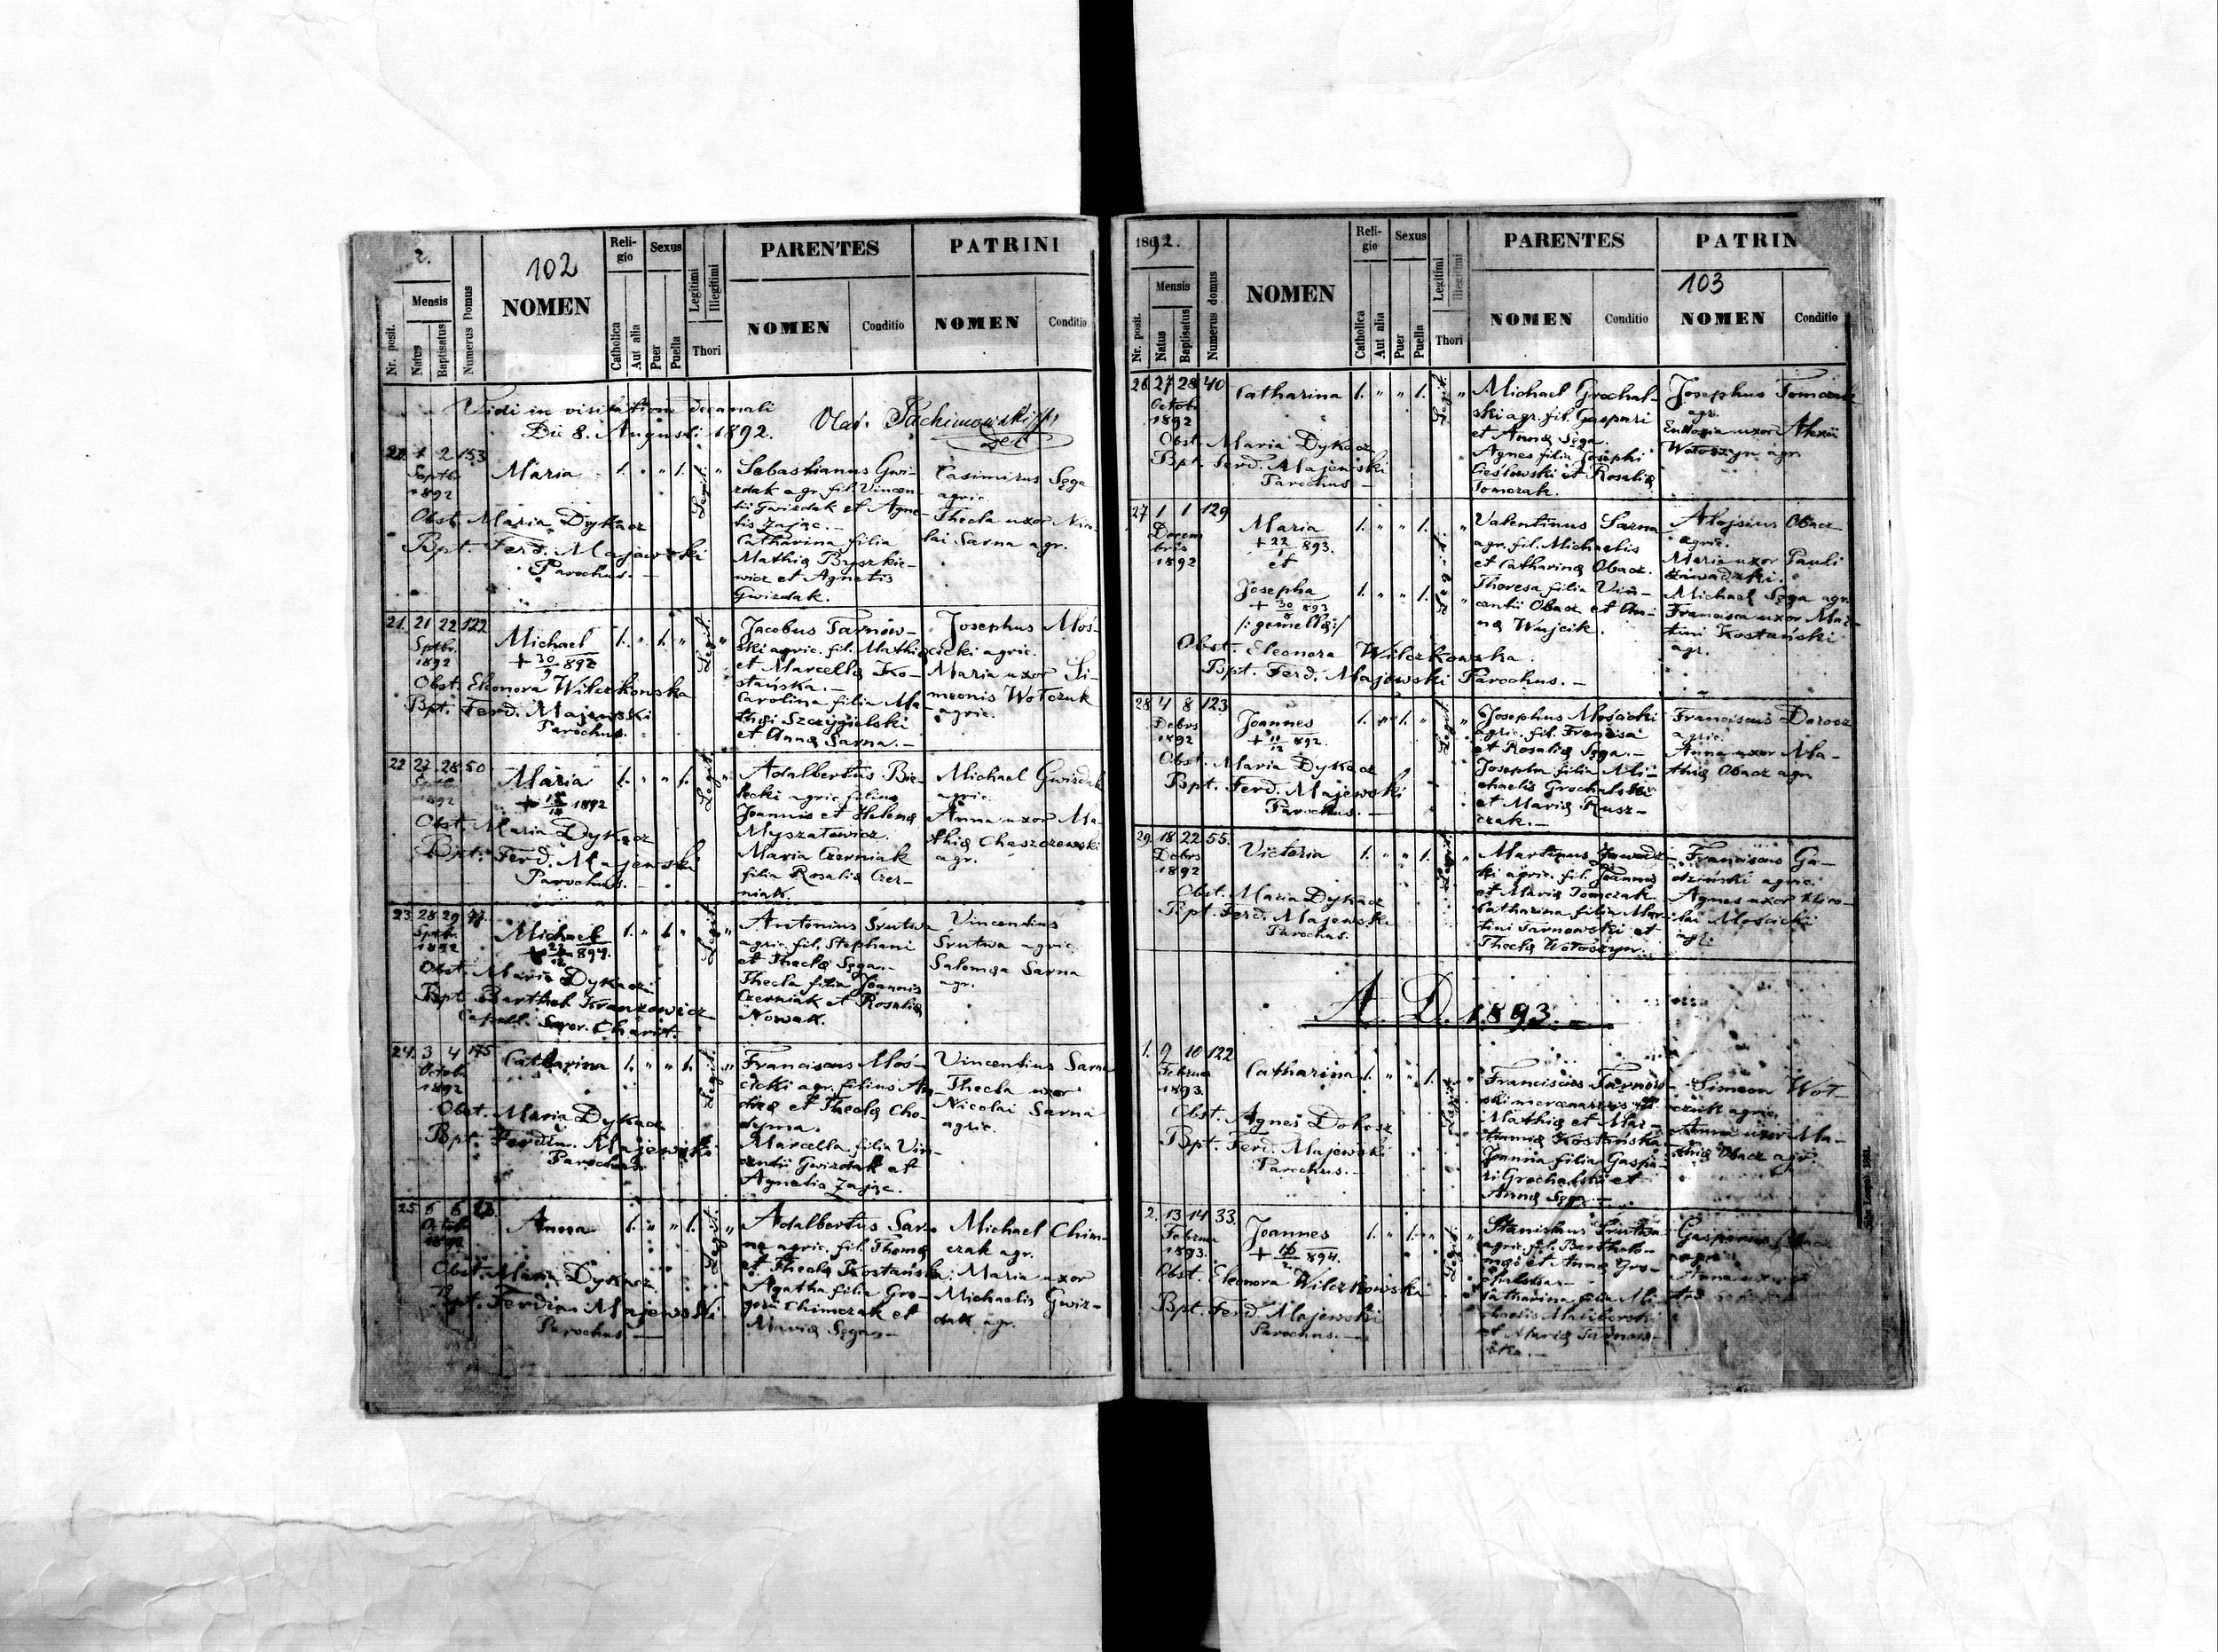 2.
102
Mensis
Nr. posit.
Natus
Baptisatus
Numerus Domus
NOMEN
Reli-
gio
Catholica
Aut alia
Sexus
Puer
Puella
Legitimi
Illegitimi
Thori
PARENTES
NOMEN
Conditio
PATRINI
NOMEN
Conditio
Vidi in visitatione decanali
Die 8. Augusti 1892.
Dec
1 2 153
Septbr.
1892
Maria
1. " " 1.
Legit.
Obst. Maria Dykacz
Bpt. Ferd. Majewski
Parochus. —
Sebastianus Gwi-
zdak agr. fil. Vincen-
tii Gwizdak et Agne-
tis Zając. —
Catharina filia
Mathiæ Bryszkie-
wicz et Agnetis
Gwizdak.
Casimirus Sęga
agric.
Thecla uxor Nico-
lai Sarna agr.
21. 21 22 122
Sptbr.
1892
Michael
+ 30/9 892
1. " 1. "
Legit.
Obst. Eleonora Wilczkowska
Bpt. Ferd. Majewski
Parochus.
Jacobus Tarnow-
ski agric. fil. Mathiæ
et Marcellæ Ko-
stańska. —
Carolina filia Ma-
thæi Szczygielski
et Annæ Sarna. —
Josephus Moś-
cicki agric.
Maria uxor Si-
meonis Wołczuk
agric.
22 27 28 50
1892
Maria
1892
1. " " 1.
Legit.
Obst. Maria Dykacz
Bpt. Ferd. Majewski
Parochus. —
Adalbertus Bie-
lecki agric. filius
Joannis et Helenæ
Myszatowicz.
Maria Czerniak
filia Rosaliæ Czer-
niak.
Michael Gwizdak
agric.
Anna uxor Ma-
thiæ Chaszczewski
agr.
23 28 29
Sptbr.
1892
Michael
1. " 1. "
Legit.
Obst. Maria Dykacz
Bpt. Barthol. Kranzowicz
Capell. Soror. Charit.
Antonius Srutwa
agric. fil. Stephani
et Theclæ Sęga. —
Thecla filia Joannis
Czerniak et Rosaliæ
Nowak.
Vincentius
Srutwa agric.
Salomea Sarna
agr.
24. 3 4 175
Octobr.
1892
Catharina
1. " " 1.
Legit.
Obst. Maria Dykacz
Bpt. Ferdin. Majewski
Parochus.
Franciscus Moś-
cicki agr. filius An-
dreæ et Theclæ Cho-
dyma.
Marcella filia Vin-
centii Gwizdak et
Agnetis Zając.
Vincentius Sarna
Thecla uxor
Nicolai Sarna
agric.
25. 6 6
Octobr.
1892
Anna
1. " " 1.
Legit.
Obst. Maria Dykacz
Bpt. Ferdin. Majewski
Parochus —
Adalbertus Sar-
na agric. fil. Thomæ
et Theclæ Kostańska.
Agatha filia Gre-
gorii Chimczak et
Mariæ Sęga. —
Michael Chim-
czak agr.
Maria uxor
Michaelis Gwiz-
dak agr.
1892.
Mensis
Nr. posit.
Natus
Baptisatus
Numerus domus
NOMEN
Reli-
gio
Catholica
Aut alia
Sexus
Puer
Puella
Legitimi
Illegitimi
Thori
PARENTES
NOMEN
Conditio
PATRIN
103
NOMEN
Conditio
26 27 28 40
Octob.
1892
Catharina
1. " " 1.
Legit.
Obst. Maria Dykacz
Bpt. Ferd. Majewski
Parochus —
Michael Grochal-
ski agr. fil. Gaspari
et Annæ Sęga.
Agnes filia Josephi
Cieślowski et Rosaliæ
Tomczak.
Josephus Tomczak
agr.
Eudoxia uxor Alexii
Wołoszyn agr.
27 1 1 129
Decem
bris
1892
Maria
+ 22/1 893.
et
Josepha
/: gemellæ :/
1. " " 1.
1. " " 1.
Legit.
Obst. Eleonora Wilczkowska.
Bpt. Ferd. Majewski Parochus. —
Valentinus Sarna
agr. fil. Michaelis
et Catharinæ Obacz.
Theresa filia Vin-
centii Obacz et An-
næ Wujcik.
Alojsius Obacz
agric.
Maria uxor Pauli
Zawadzki.
Michael Sęga agr.
Francisca uxor Mar-
tini Kostański
agr.
28 4 8 123
Debrs
1892
Joannes
+ 11/12 892.
1. " 1. "
Legit.
Obst. Maria Dykacz
Bpt. Ferd. Majewski
Parochus. —
Josephus Mościcki
agric. fil. Francisci
et Rosaliæ Sęga. —
Josepha filia Mi-
chaelis Grochalski
et Mariæ Rusz-
czak. —
Franciscus Dorosz
agric.
Anna uxor Ma-
thiæ Obacz agr.
29. 18 22 55.
Debrs
1892
Victoria
1. " " 1.
Legit.
Obst. Maria Dykacz
Bpt. Ferd. Majewski
Parochus.
Martinus Zawadz-
ki agric. fil. Joannis
et Mariæ Tomczak.
Catharina filia Mar-
tini Tarnowski et
Theclæ Wołoszyn.
Franciscus Ga-
dziński agric.
Agnes uxor Nico-
lai Mościcki
agr.
A. D. 1893. —
1. 9 10 122
Februar
1893.
Catharina
1. " " 1.
Legit.
Obst. Agnes Dokosz
Bpt. Ferd. Majewski
Parochus. —
Franciscus Tarnow-
ski mercenarius fil.
Mathiæ et Mar-
Kostańska
Joanna filia Gaspa-
ri Grochalski et
Annæ Sęga. —
Simeon Woł-
czuk agric.
Anna uxor Ma-
thiæ Obacz agr.
2. 13 14 33.
Februar
1893.
Joannes
1. " 1. "
Legit.
Obst. Eleonora Wilczkowska
Bpt. Ferd. Majewski
Parochus. —
Stanislaus Srutwa
agric. fil. Bartholo-
mæi et Annæ Gro-
Catharina filia Mi-
chaelis Maliborski
et Mariæ Tarnow-
ska. —
Anna uxor